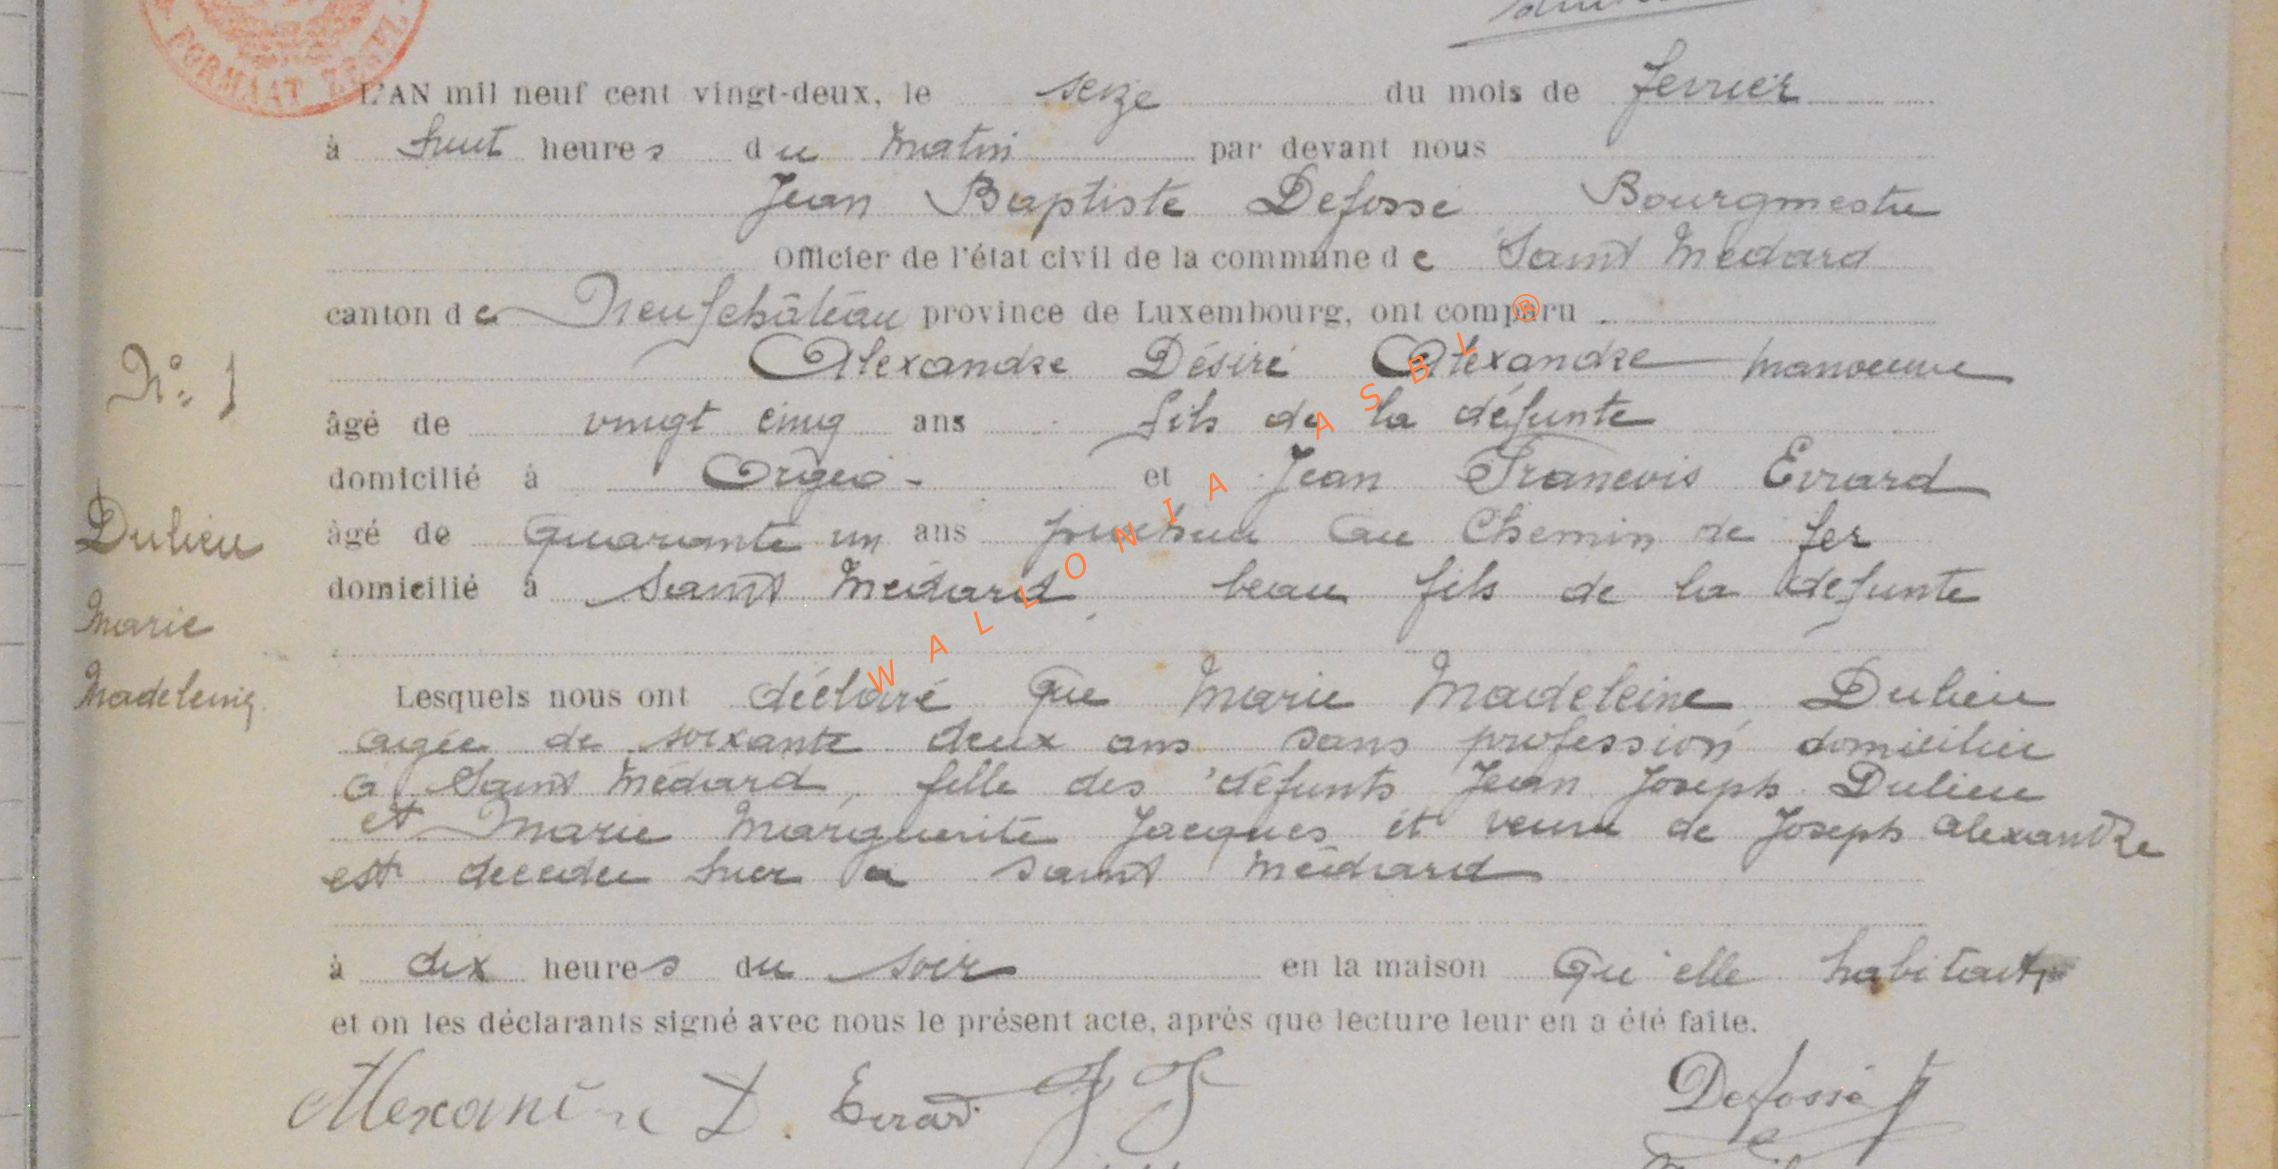 FORMAAT ZEGEL
L'AN mil neuf cent vingt-deux, le seize du mois de fevrier
à huit heures du matin par devant nous
Jean Baptiste Defossé Bourgmestre
Officier de l'état civil de la commune de Saint Médard
canton de Neufchâteau province de Luxembourg, ont comparu
Alexandre Désiré Alexandre manoeuvre
N° 1
âgé de vingt cinq ans fils de la défunte
domicilié à Orgeo - et Jean Francois Evrard
Dulieu
âgé de quarante un ans piocheur au Chemin de fer
domicilié à Saint Médard, beau fils de la defunte
Marie
Madeleine
Lesquels nous ont déclaré que Marie Madeleine Dulieu
agée de soixante deux ans sans profession domiciliée
à Saint Médard, fille des défunts Jean Joseph Dulieu
et Marie Marguerite Jacques et veuve de Joseph Alexandre
est decedée hier à Saint Médard
à dix heures du soir en la maison qu'elle habitait
et on les déclarants signé avec nous le présent acte, après que lecture leur en a été faite.
Alexandre D. Evrard J F Defossé
WALLONIA ASBL ®